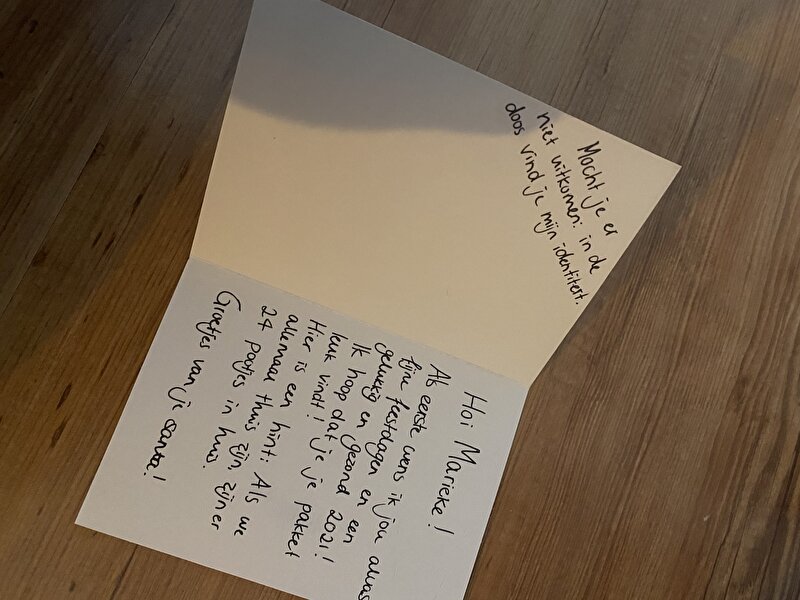 Mocht je er
niet uitkomen: in de
doos vind je mijn identiteit.
Hoi Marieke!
Als eerste wens ik jou alvast
fijne feestdagen en een
gelukkig en gezond 2021!
Ik hoop dat je je pakket
leuk vindt!
Hier is een hint: Als we
allemaal thuis zijn, zijn er
24 pootjes in huis.
Groetjes van je santa!